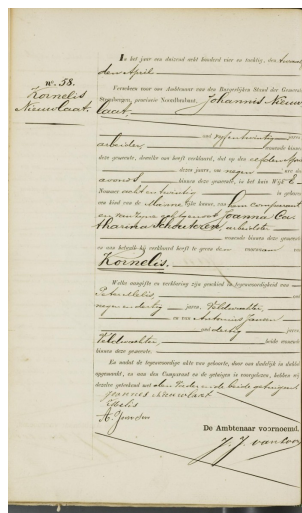 In het jaar een duizend acht honderd vier en tachtig, den
den April
n°. 58.
Kornelis
Nieuwlaat.
Verscheen voor ons Ambtenaar van den Burgerlijken Stand der Gemeente
Steenbergen, provincie Noordbrabant, Johannis Nieuw
laat,
oud vijfentwintig jaren,
arbeider, wonende binnen
deze gemeente, dewelke ons heeft verklaard, dat op den
dezes jaars, om negen ure des
avonds binnen deze gemeente, in het huis Wijk
Nummer achtentwintig is geboren
een kind van de Mannelijke kunne, van hem comparant
en van zijne echtgenoot Joanna Cat
tharina Schoutezen, arbeidster
wonende binnen deze gemeente
en aan hetwelk hij verklaard heeft te geven de voornaam van
Kornelis.
Welke aangifte en verklaring zijn geschied in tegenwoordigheid van
Pieter
negenendertig jaren, Veldwachter,
en van Antonius Jansen
oud dertig jaren,
Veldwachter, beide wonende
binnen deze gemeente.
En zijn de tegenwoordige akte van geboorte, door ons dadelijk in dubbel
opgemaakt, en aan den Comparant en de getuigen is voorgelezen, hebben wij
dezelve geteekend met den Vader en de beide getuigen
Joannes Nieuwlaat
De Ambtenaar voornoemd.